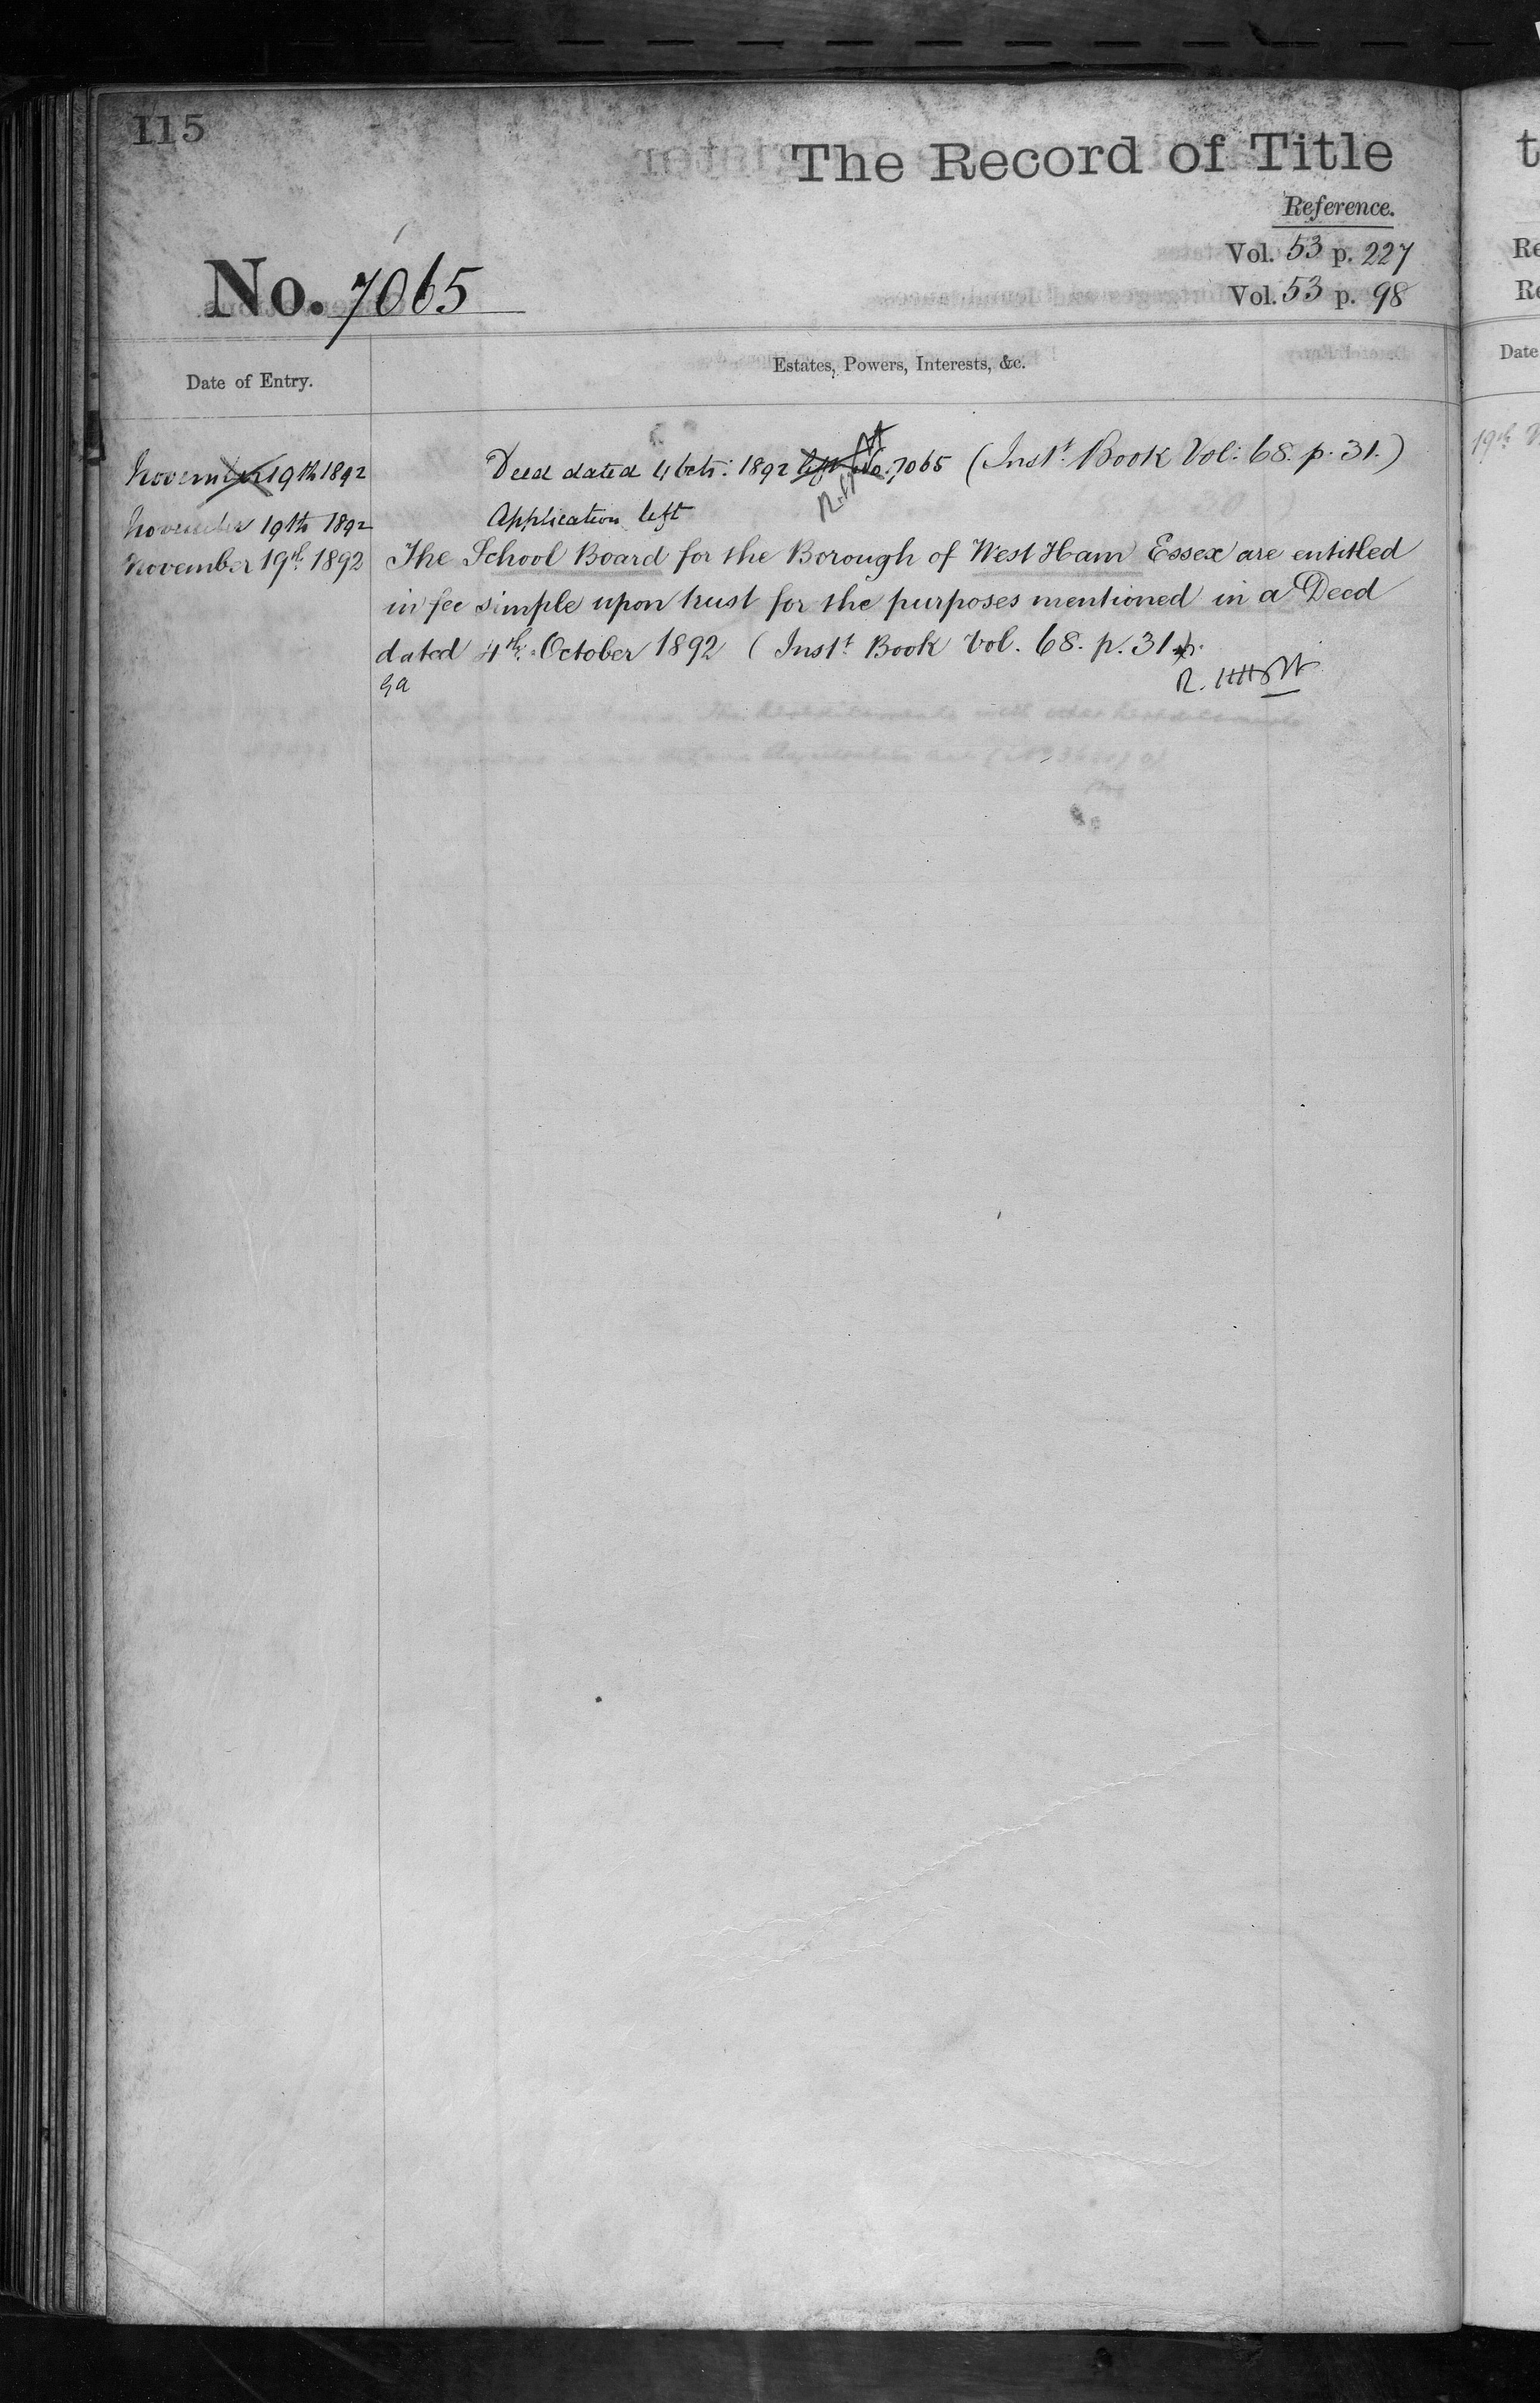 115
The Record of Title
Reference.
Vol. 53 p. 227
No. 7065
Vol. 53 p. 98
Date of Entry.
Estates, Powers, Interests, &c.
November 19th 1892 Deed dated 4 Octr: 1892 left No. 7065 (Inst. Book Vol: 68. p. 31.)
November 19th 1892 Application left
November 19th 1892 The School Board for the Borough of West Ham Essex are entitled
in fee simple upon trust for the purposes mentioned in a Deed
dated 4th October 1892 (Inst. Book Vol. 68. p. 31
t
Re
Re
Date
19th